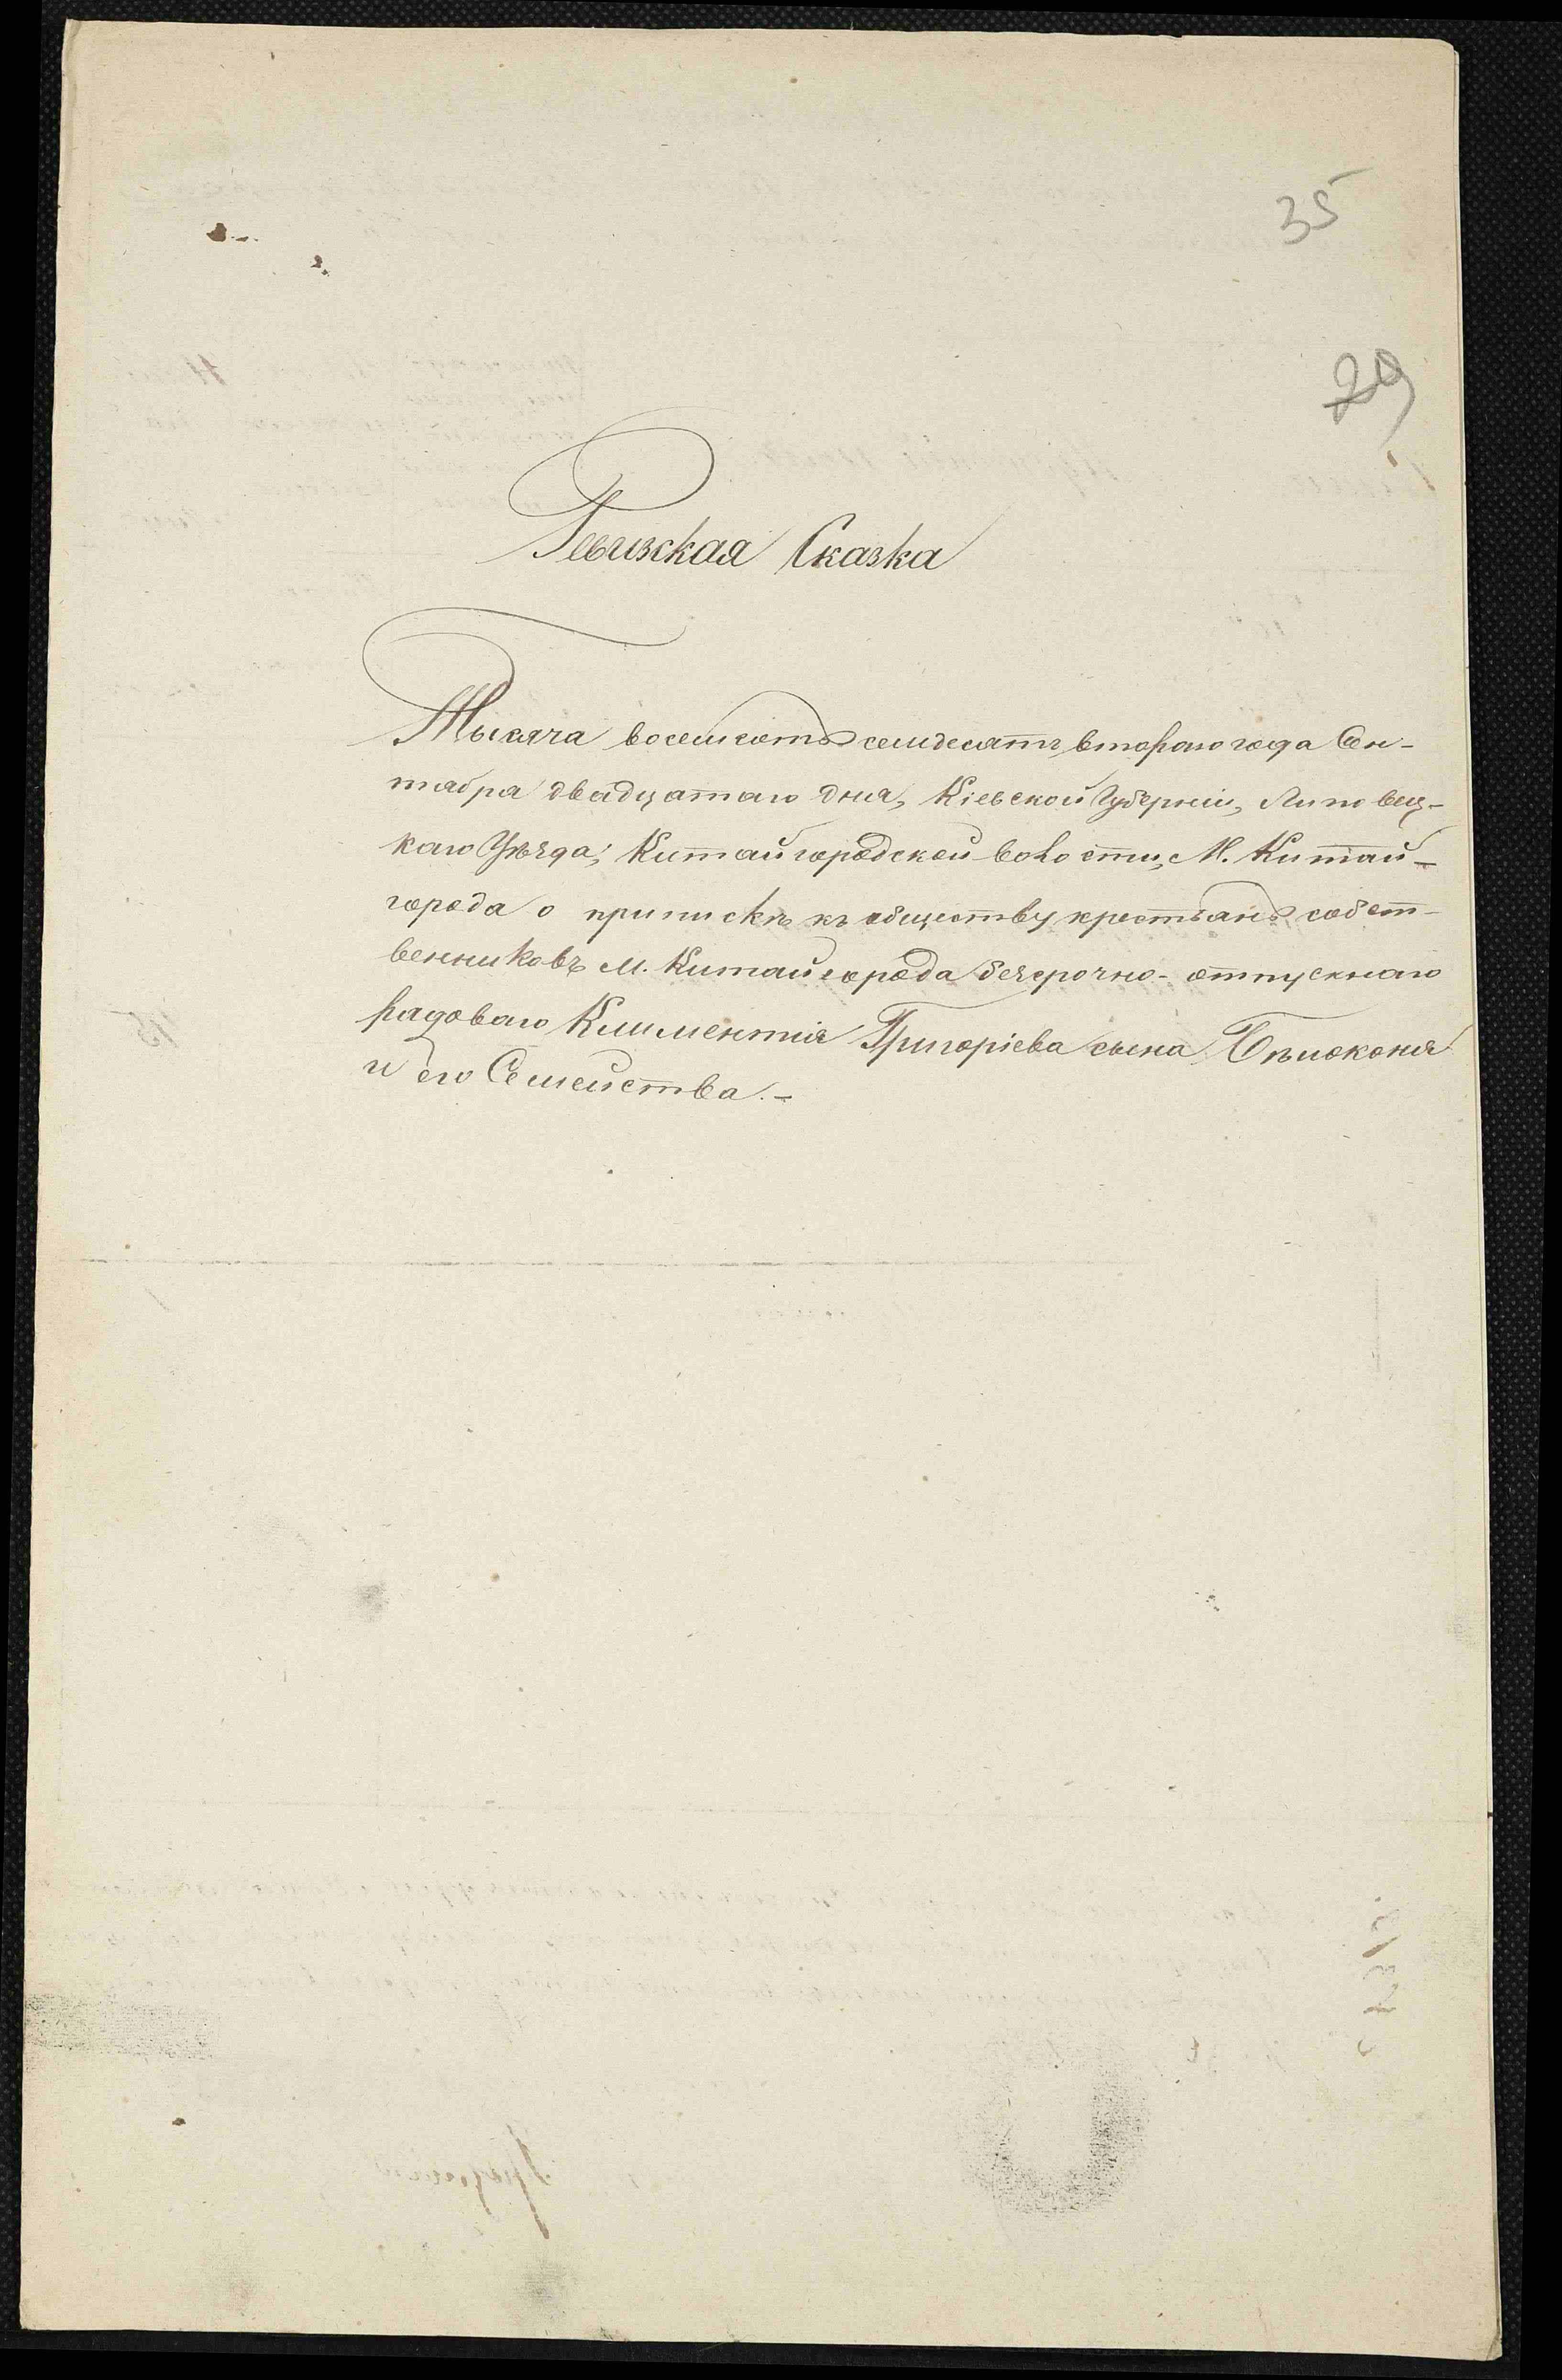 35
29
Ревизская Сказка
Тысяча восемсотъ семдесятъ втораго года Сен-
тября двадцатаго дня, Кіевской Губерніи, Липовец-
каго Уѣзда, Китайгородской волости, М. Китай-
города о припискѣ къ обществу крестьянъ собст-
венниковъ М. Китайгорода безсрочно-отпускнаго
рядоваго Климентія Григоріева сына Бѣлоконя
и его Семейства.-